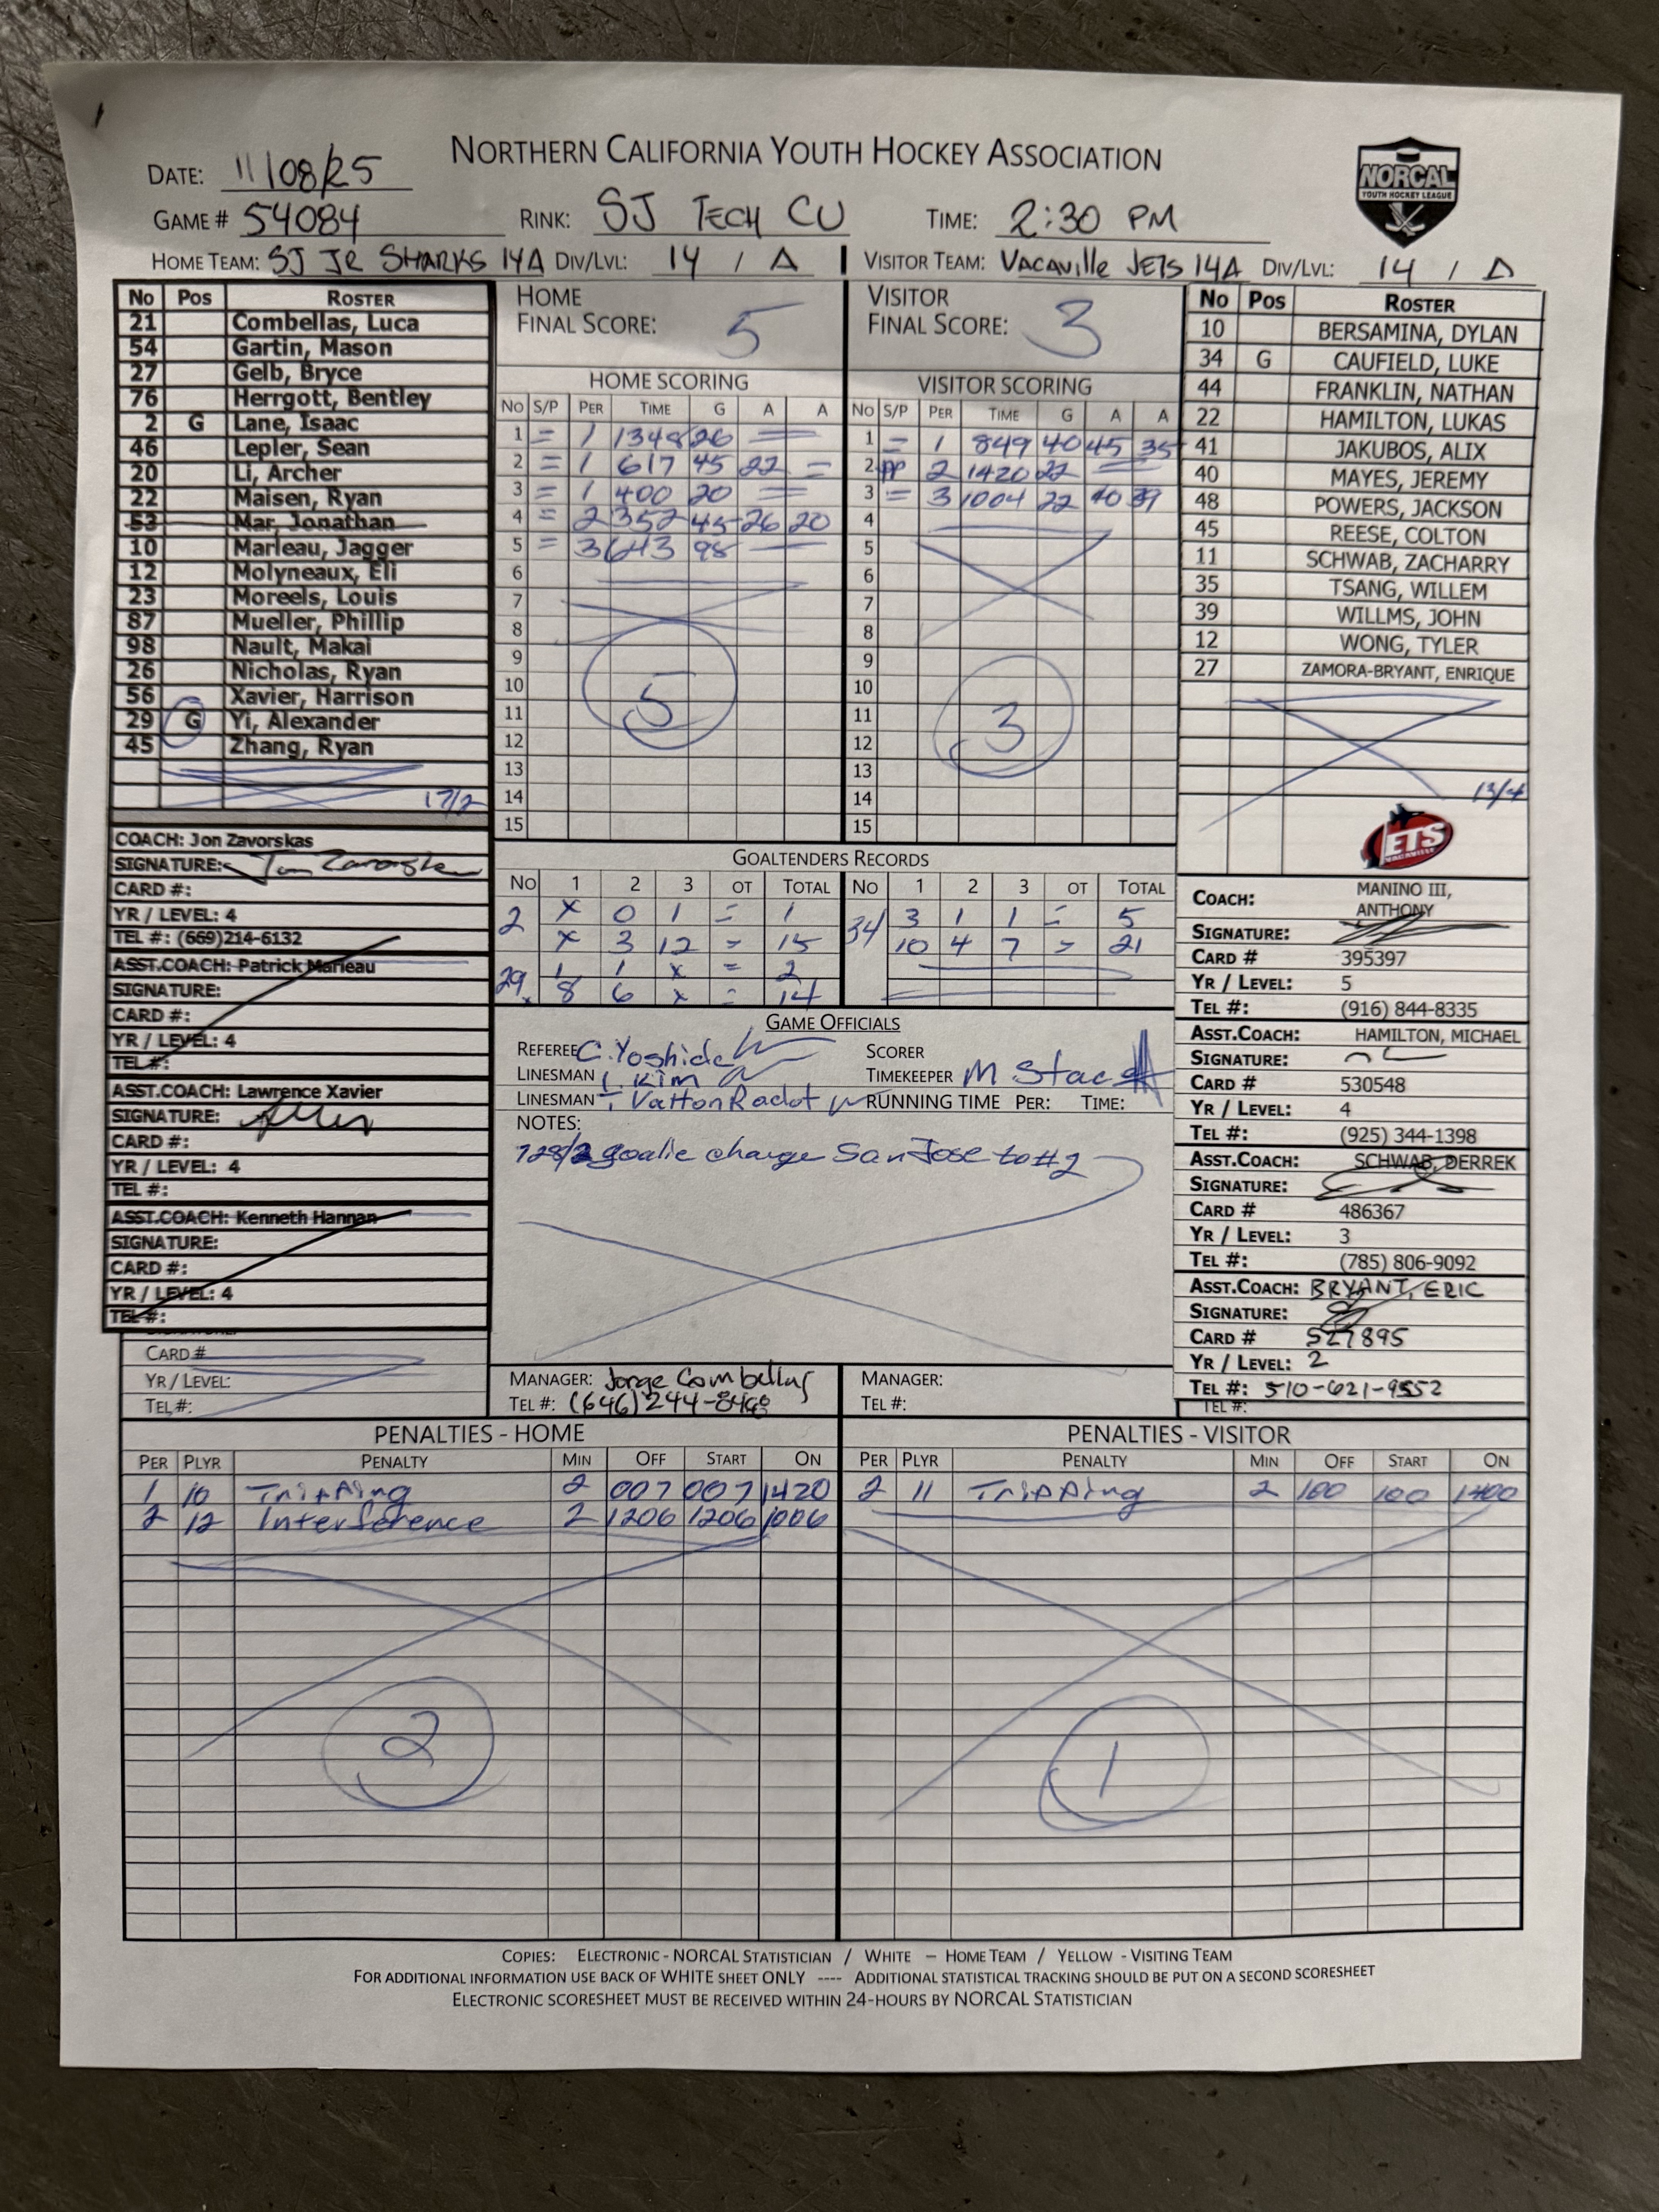 NORTHERN CALIFORNIA YOUTH HOCKEY ASSOCIATION
NORCAL
YOUTH HOCKEY LEAGUE
DATE: 11/08/25
GAME # 54084 RINK: SJ TECH CU TIME: 2:30 PM
HOME TEAM: SJ JR SHARKS 14A DIV/LVL: 14 / A VISITOR TEAM: VACAVILLE JETS 14A DIV/LVL: 14 / A
No Pos ROSTER
21 Combellas, Luca
54 Gartin, Mason
27 Gelb, Bryce
76 Herrgott, Bentley
2 G Lane, Isaac
46 Lepler, Sean
20 Li, Archer
22 Maisen, Ryan
53 Mar, Jonathan
10 Marleau, Jagger
12 Molyneaux, Eli
23 Moreels, Louis
87 Mueller, Phillip
98 Nault, Makai
26 Nicholas, Ryan
56 Xavier, Harrison
29 G Yi, Alexander
45 Zhang, Ryan
17/2
COACH: Jon Zavorskas
SIGNATURE:
CARD #:
YR / LEVEL: 4
TEL #: (669)214-6132
ASST.COACH: Patrick Marleau
SIGNATURE:
CARD #:
YR / LEVEL: 4
TEL #:
ASST.COACH: Lawrence Xavier
SIGNATURE:
CARD #:
YR / LEVEL: 4
TEL #:
ASST.COACH: Kenneth Hannan
SIGNATURE:
CARD #:
YR / LEVEL: 4
TEL #:
CARD #
YR / LEVEL:
TEL #:
HOME FINAL SCORE: 5
VISITOR FINAL SCORE: 3
HOME SCORING
No S/P PER TIME G A A
1 = 1 1348 26
2 = 1 617 45 22 =
3 = 1 400 20
4 = 2 352 45 26 20
5 = 3 643 98
6
7
8
9
10
11
12
13
14
15
5
VISITOR SCORING
No S/P PER TIME G A A
1 = 1 849 40 45 35
2 PP 2 1420 22
3 = 3 1004 22 40 39
4
5
6
7
8
9
10
11
12
13
14
15
3
GOALTENDERS RECORDS
No 1 2 3 OT TOTAL No 1 2 3 OT TOTAL
2 x 0 1 = 1 34 3 1 1 = 5
x 3 12 = 15 10 4 7 = 21
29 1 1 x = 2
8 6 x = 14
GAME OFFICIALS
REFEREE C. Yoshida SCORER
LINESMAN Kim TIMEKEEPER M Stac
LINESMAN RUNNING TIME PER: TIME:
NOTES:
728/2 goalie change San Jose to #2
MANAGER: Jorge Combellas MANAGER:
TEL #: (646)244- TEL #:
No Pos ROSTER
10 BERSAMINA, DYLAN
34 G CAUFIELD, LUKE
44 FRANKLIN, NATHAN
22 HAMILTON, LUKAS
41 JAKUBOS, ALIX
40 MAYES, JEREMY
48 POWERS, JACKSON
45 REESE, COLTON
11 SCHWAB, ZACHARRY
35 TSANG, WILLEM
39 WILLMS, JOHN
12 WONG, TYLER
27 ZAMORA-BRYANT, ENRIQUE
13/4
JETS
VACAVILLE
COACH: MANINO III, ANTHONY
SIGNATURE:
CARD # 395397
YR / LEVEL: 5
TEL #: (916) 844-8335
ASST.COACH: HAMILTON, MICHAEL
SIGNATURE:
CARD # 530548
YR / LEVEL: 4
TEL #: (925) 344-1398
ASST.COACH: SCHWAB, DERREK
SIGNATURE:
CARD # 486367
YR / LEVEL: 3
TEL #: (785) 806-9092
ASST.COACH: BRYANT, ERIC
SIGNATURE:
CARD # 527895
YR / LEVEL: 2
TEL #: 510-621-9552
TEL #:
PENALTIES - HOME
PER PLYR PENALTY MIN OFF START ON
1 10 Tripping 2 007 007 1420
2 12 Interference 2 1206 1206 1006
2
PENALTIES - VISITOR
PER PLYR PENALTY MIN OFF START ON
2 11 Tripping 2 100 100 1400
1
COPIES: ELECTRONIC - NORCAL STATISTICIAN / WHITE – HOME TEAM / YELLOW - VISITING TEAM
FOR ADDITIONAL INFORMATION USE BACK OF WHITE SHEET ONLY ---- ADDITIONAL STATISTICAL TRACKING SHOULD BE PUT ON A SECOND SCORESHEET
ELECTRONIC SCORESHEET MUST BE RECEIVED WITHIN 24-HOURS BY NORCAL STATISTICIAN